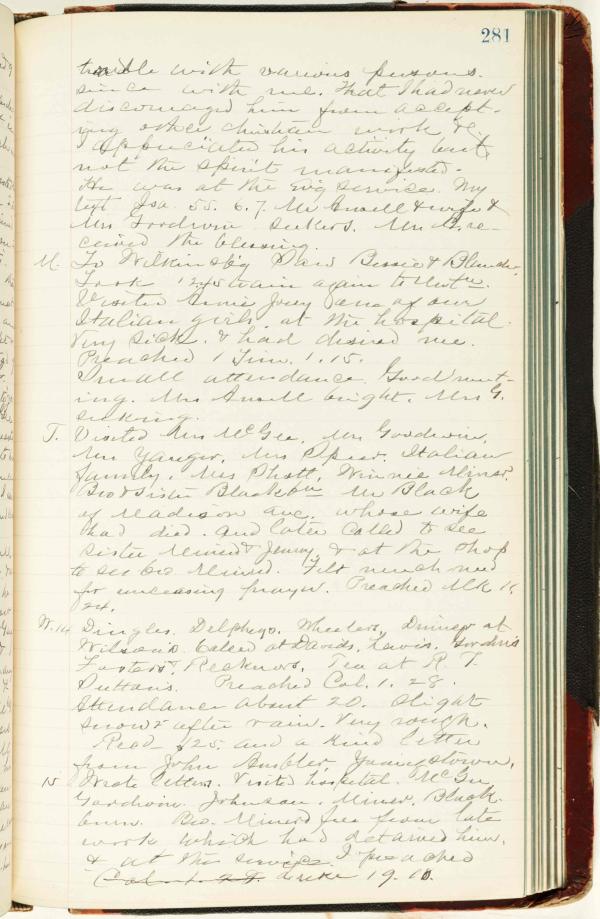 281
trouble with various persons
since with me. That I had never
discouraged him from accept-
ing other christian work &c.
I appreciated his activity but
not the spirit manifested.
He was at the evg service. My
text Isa. 55. 6.7. Mr Ansell & wife &
Mrs Goodwin seekers. Mrs A. re-
ceived the blessing.
M. To Wilkinsb'g Saw Bessie & Blanche.
Took 12.45 train again to
Visited Annie Josey one of our
Italian girls. at the hospital.
Very sick. & had desired me.
Preached 1 Tim. 1. 15.
Small attendance. Good meet-
ing. Mrs Ansell bright. Mrs G.
seeking.
T. Visited Mrs McGee. Mrs Goodwin.
Mrs Yauger, Mrs Spear. Italian
family. Mrs Shott. Winnie Miner.
Bro & Sister Blackbn Mr Black
of Madison Ave. whose wife
had died. and later called to see
Sister Miner & Jenny. & at the shop
to see bro Miner. Felt much need
for unceasing prayer. Preached Mk 11,
24.
W. 14 Dingles. Delpheys. Wheelers, Dinner at
Wilsons. Called at Davids, Lewis, Gordons
Fosters, Recknors, Tea at R. T.
Suttons. Preached Col. 1. 28.
Attendance about 20. Slight
snow & after rain. Very rough.
Recd $25. and a kind letter
from John Ambler, Youngstown.
15 Wrote letters. Visited hospital. McGee
Goodwin. Johnson. Miner, Black-
burn. Bro. Miner free from late
work which had detained him,
& at the services. I preached
Col. 1. 27. Luke 19. 10.